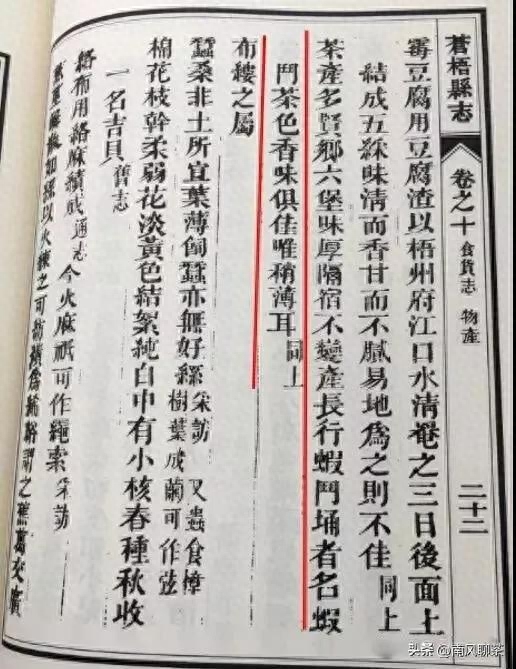 蒼梧縣志
卷之十 食貨志 物產
二十二
霉豆腐用豆腐渣以梧州府江口水清𢋫之三日後面上
結成五綵味淸而香甘而不膩易地爲之則不佳 同上
茶產多賢鄉六堡味厚隔宿不變產長行蝦鬥埇者名蝦
鬥茶色香味俱佳唯稍薄耳 同上
布縷之屬
蠶桑非土所宜葉薄飼蠶亦無好絲 采訪 又蟲食樟
樹葉成繭可作弦
棉花枝幹柔弱花淡黃色結絮純白中有小核春種秋收
一名吉貝 舊志
絡布用絡麻績成 通志 今火麻祇可作繩索 采訪
以火練之可紡績爲
謂之蕉葛
头条 @南风聊茶